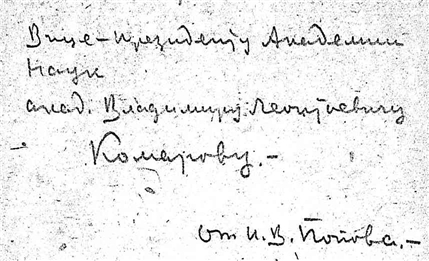 Вице-президенту Академии
Наук
акад. Владимиру Леонтьевичу
Комарову.-
от И. В. Попова.-